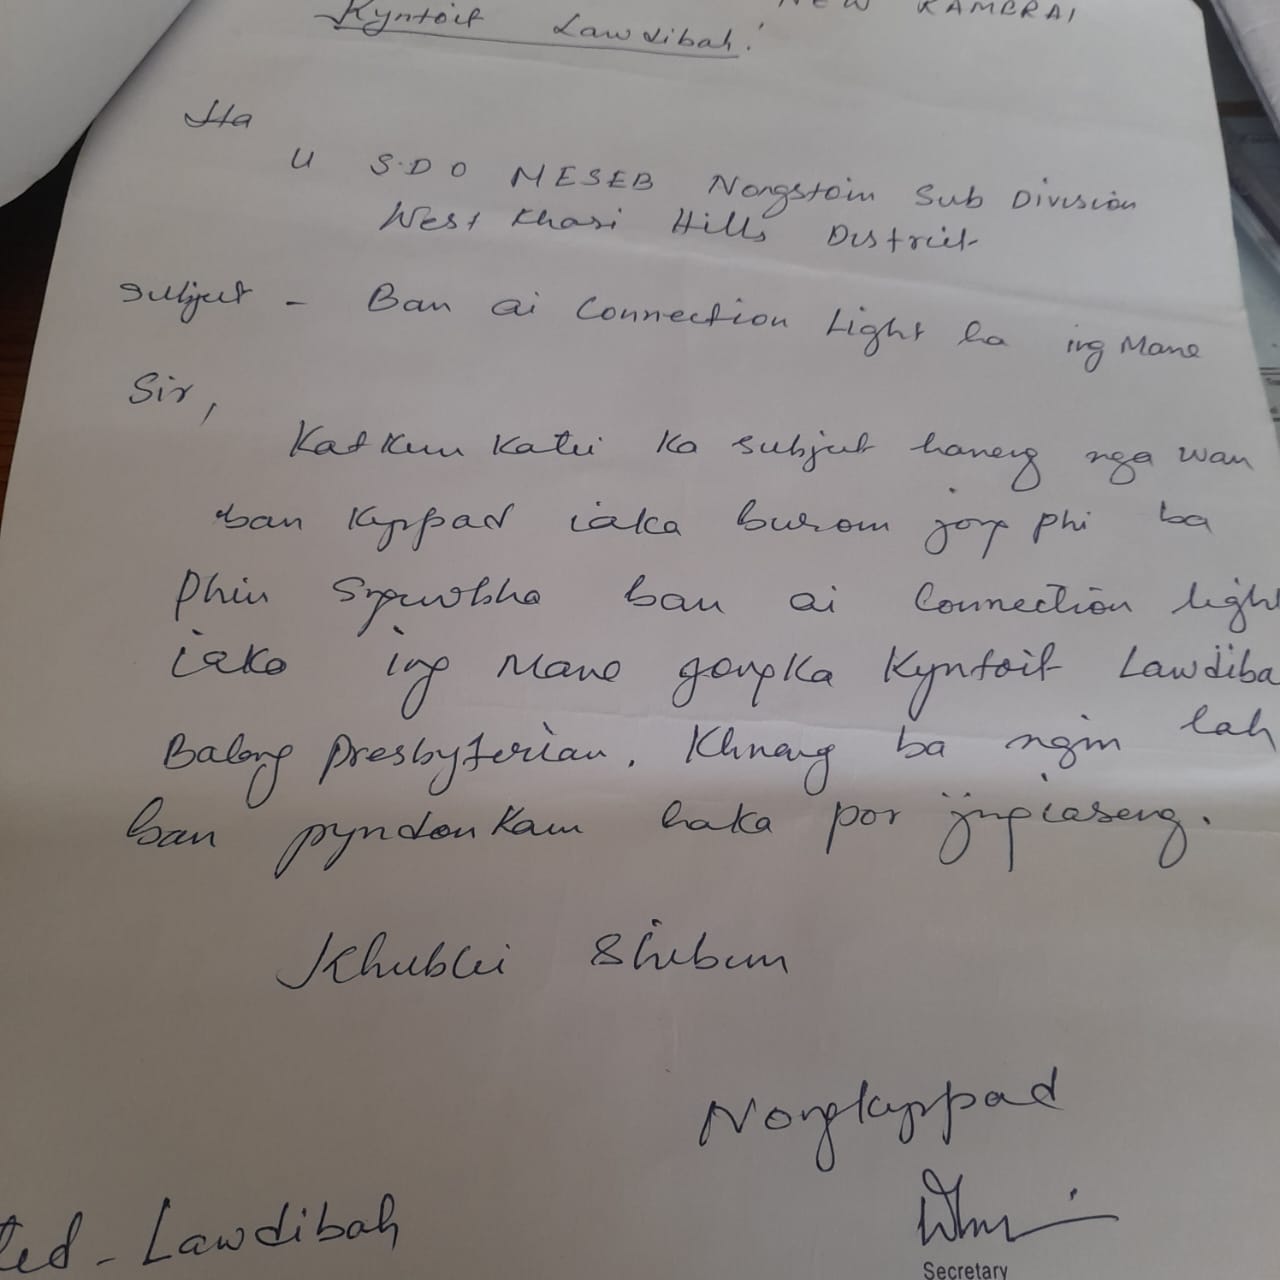 NEW KAMERAI
Kyntoit Lawdibah.
Ha
U S.D O MESEB Nongstoin Sub Division
West Khasi Hills District
Subject - Ban ai Connection Light ha ing Mane
Sir,
Katkum Katei Ka subject haneng nga wan
ban Kyrpad iaka burom jong phi ba
Phin Sngewbha ban ai Connection light
iaka ing Mane jong Ka Kyntoit Lawdiba
Balang Presbyterian. Khnang ba ngin lah
ban pyndonkam haka por jingiaseng.
Khublei Shibun
Nongkyrpad
ted - Lawdibah
Secretary